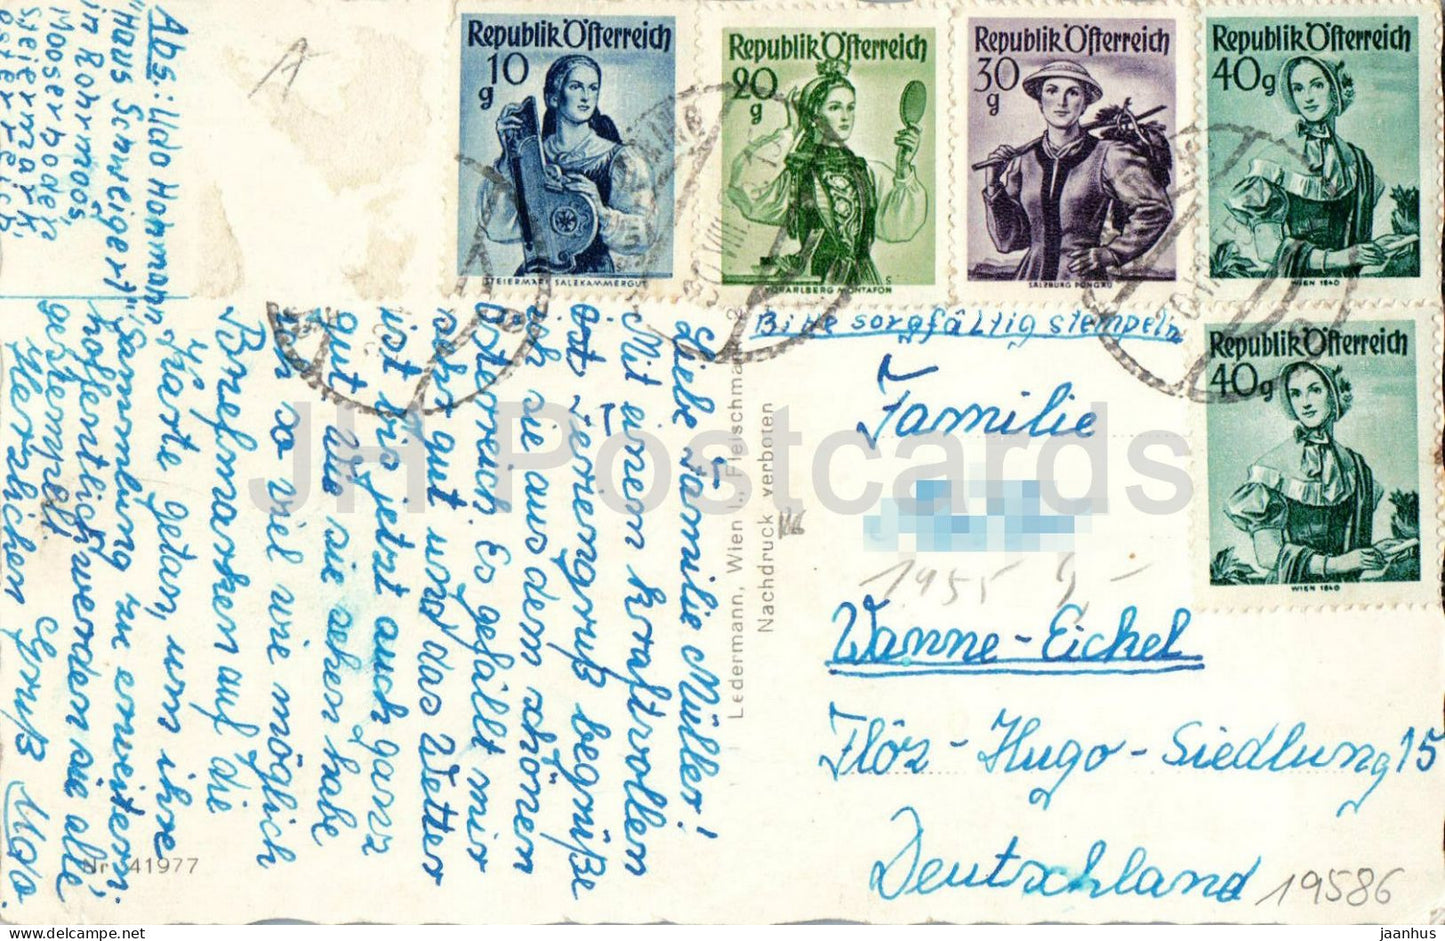 Abs.: Udo Hohmann
"Haus Schweigert"
in Rohrmoos,
Mooserboden
Steiermark,
Österreich
A
Republik Österreich
10
g
STEIERMARK SALZKAMMERGUT
Republik Österreich
20
g
VORARLBERG MONTAFON
Republik Österreich
30
g
SALZBURG PONGAU
Republik Österreich
40g
WIEN 1840
Republik Österreich
40g
WIEN 1840
Bitte sorgfältig stempeln
Liebe Familie Müller!
Mit einem kraftvollen
Feriengruß begrüße
ich sie aus dem schönen
Österreich. Es gefällt mir
sehr gut und das Wetter
ist bis jetzt auch ganz
gut. Wie sie sehen habe
ich so viel wie möglich
Briefmarken auf die
Karte getan, um ihre
Sammlung zu erweitern,
hoffentlich werden sie alle
gestempelt.
Herzlichen Gruß Udo.
Ledermann, Wien I., Fleischmarkt
Nachdruck verboten
Nr. 41977
Familie
1955 9,-
Wanne-Eickel
Flöz-Hugo-Siedlung 15
Deutschland
19586
JH Postcards
jaanhus - https://jhpostcards.com